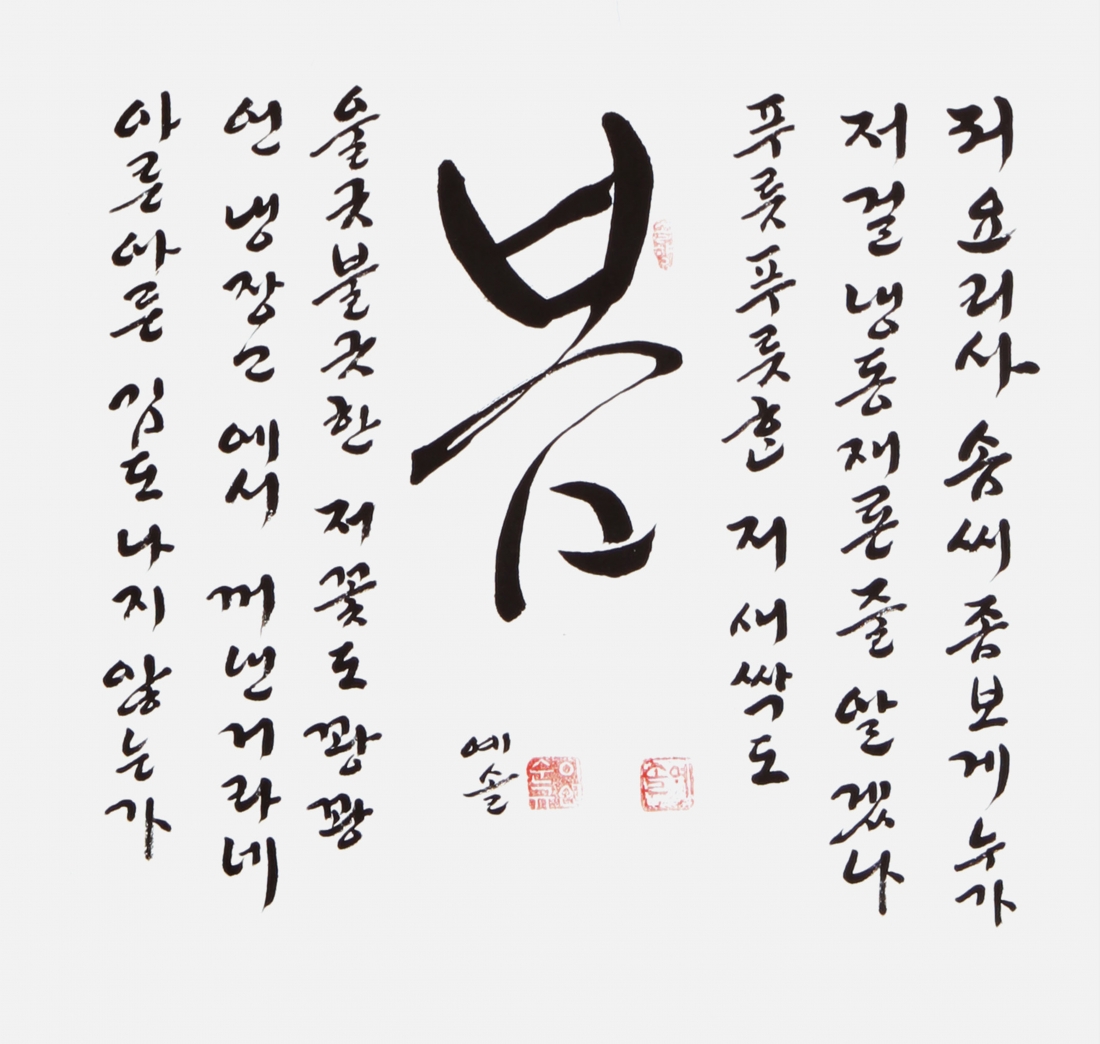 봄
저 요리사 솜씨 좀 보게 누가
저걸 냉동재룐 줄 알겠나
푸릇푸릇한 저 새싹도
울긋불긋한 저 꽃도 꽝꽝
언 냉장고에서 꺼낸 거라네
아른아른 김도 나지 않는가
예솔